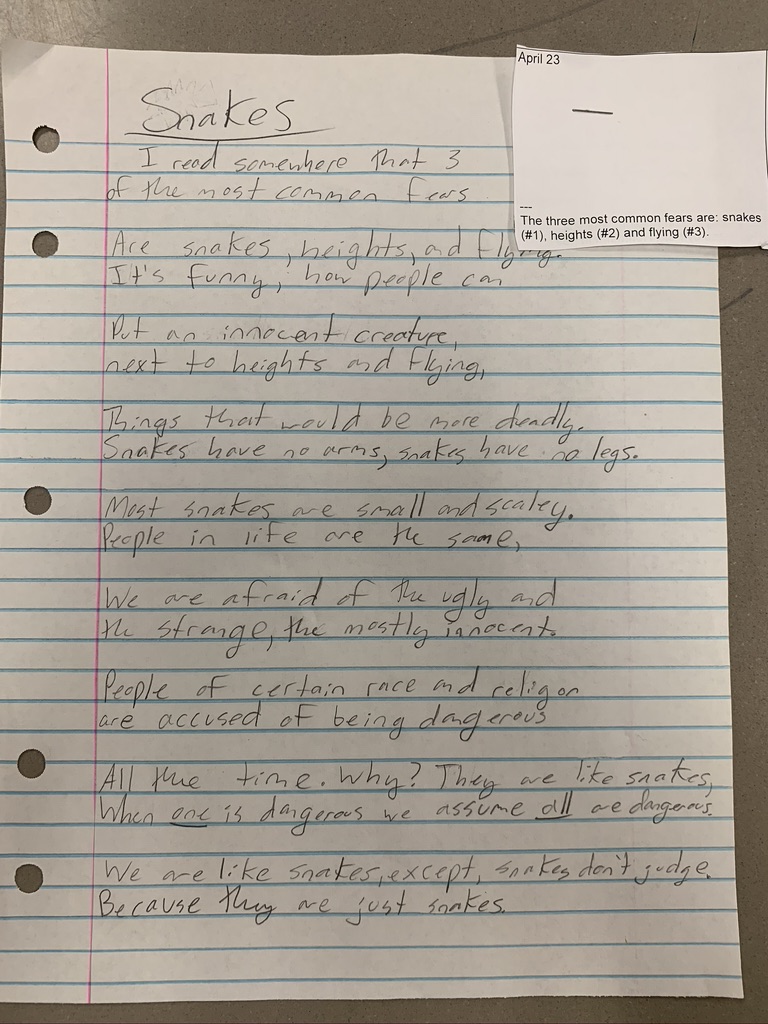 Snakes
I read somewhere that 3
of the most common fears
Are snakes, heights, and flying.
It's funny, how people can
Put an innocent creature,
next to heights and flying,
Things that would be more deadly.
Snakes have no arms, snakes have no legs.
Most snakes are small and scaley.
People in life are the same,
We are afraid of the ugly and
the strange, the mostly innocent.
People of certain race and religon
are accused of being dangerous
All the time. Why? They are like snakes,
When one is dangerous we assume all are dangerous.
We are like snakes, except, snakes don't judge.
Because they are just snakes.
April 23
---
The three most common fears are: snakes
(#1), heights (#2) and flying (#3).